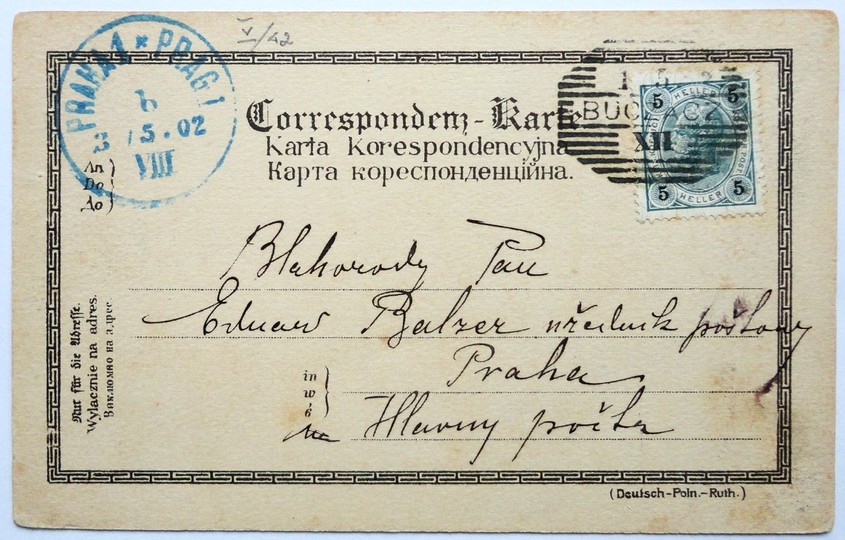 V/42
PRAHA 1 * PRAG 1
3 /5.02
VIII
1 5 2
BUC CZ
XII
5 HELLER 5
5 HELLER 5
Correspondenz-Karte
Karta Korespondencyjna
Карта кореспонденційна.
An
Do
До
Blahorody Pan
Eduard Balzer uřednik poštovy
in
w
в
Praha
na Hlavny pošta
Nur für die Adresse.
Wyłacznie na adres.
Виключно на адрес
(Deutsch-Poln.-Ruth.)